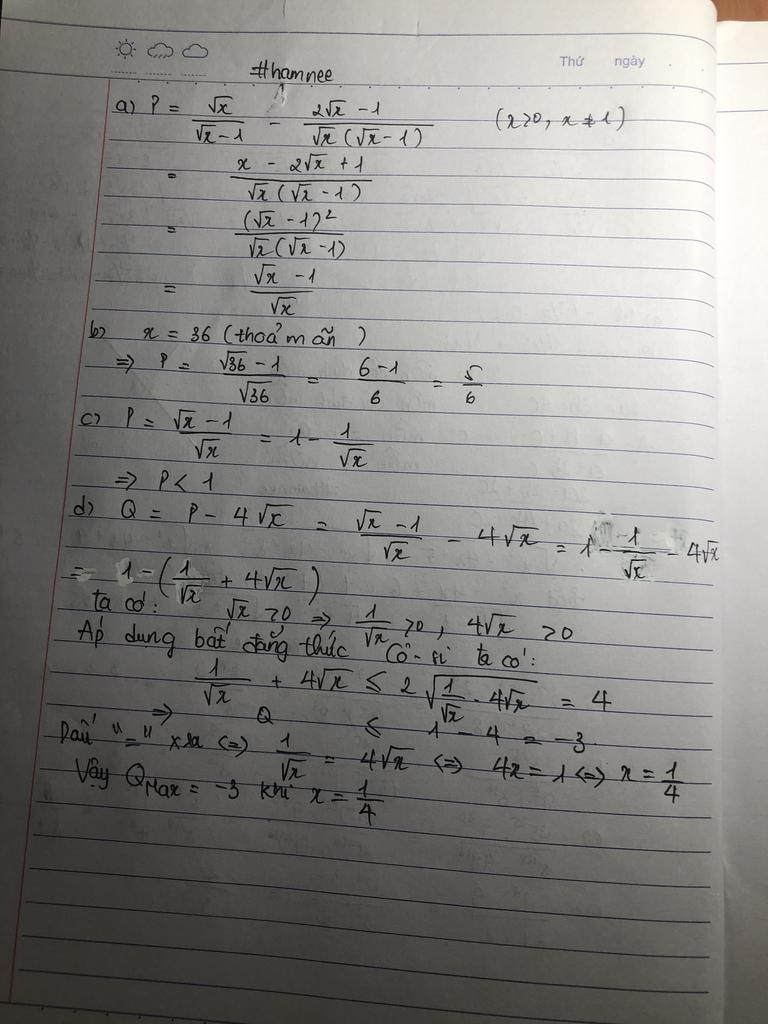 Thứ ngày
#hamnee
a) P = √x/(√x-1) - (2√x -1)/(√x(√x-1)) (x>0, x≠1)
= (x - 2√x +1)/(√x(√x-1))
= (√x -1)²/(√x(√x-1))
= (√x -1)/√x
b) x = 36 (thoả mãn)
=> P = (√36 -1)/√36 = (6-1)/6 = 5/6
c) P = (√x -1)/√x = 1 - 1/√x
=> P < 1
d) Q = P - 4√x = (√x -1)/√x - 4√x = 1 - 1/√x - 4√x
= 1 - (1/√x + 4√x)
ta có: √x >0 => 1/√x >0, 4√x >0
Áp dụng bất đẳng thức Cô-si ta có:
1/√x + 4√x ≤ 2√(1/√x · 4√x) = 4
=> Q ≤ 1 - 4 = -3
Dấu "=" xra <=> 1/√x = 4√x <=> 4x = 1 <=> x = 1/4
Vậy QMax = -3 khi x = 1/4